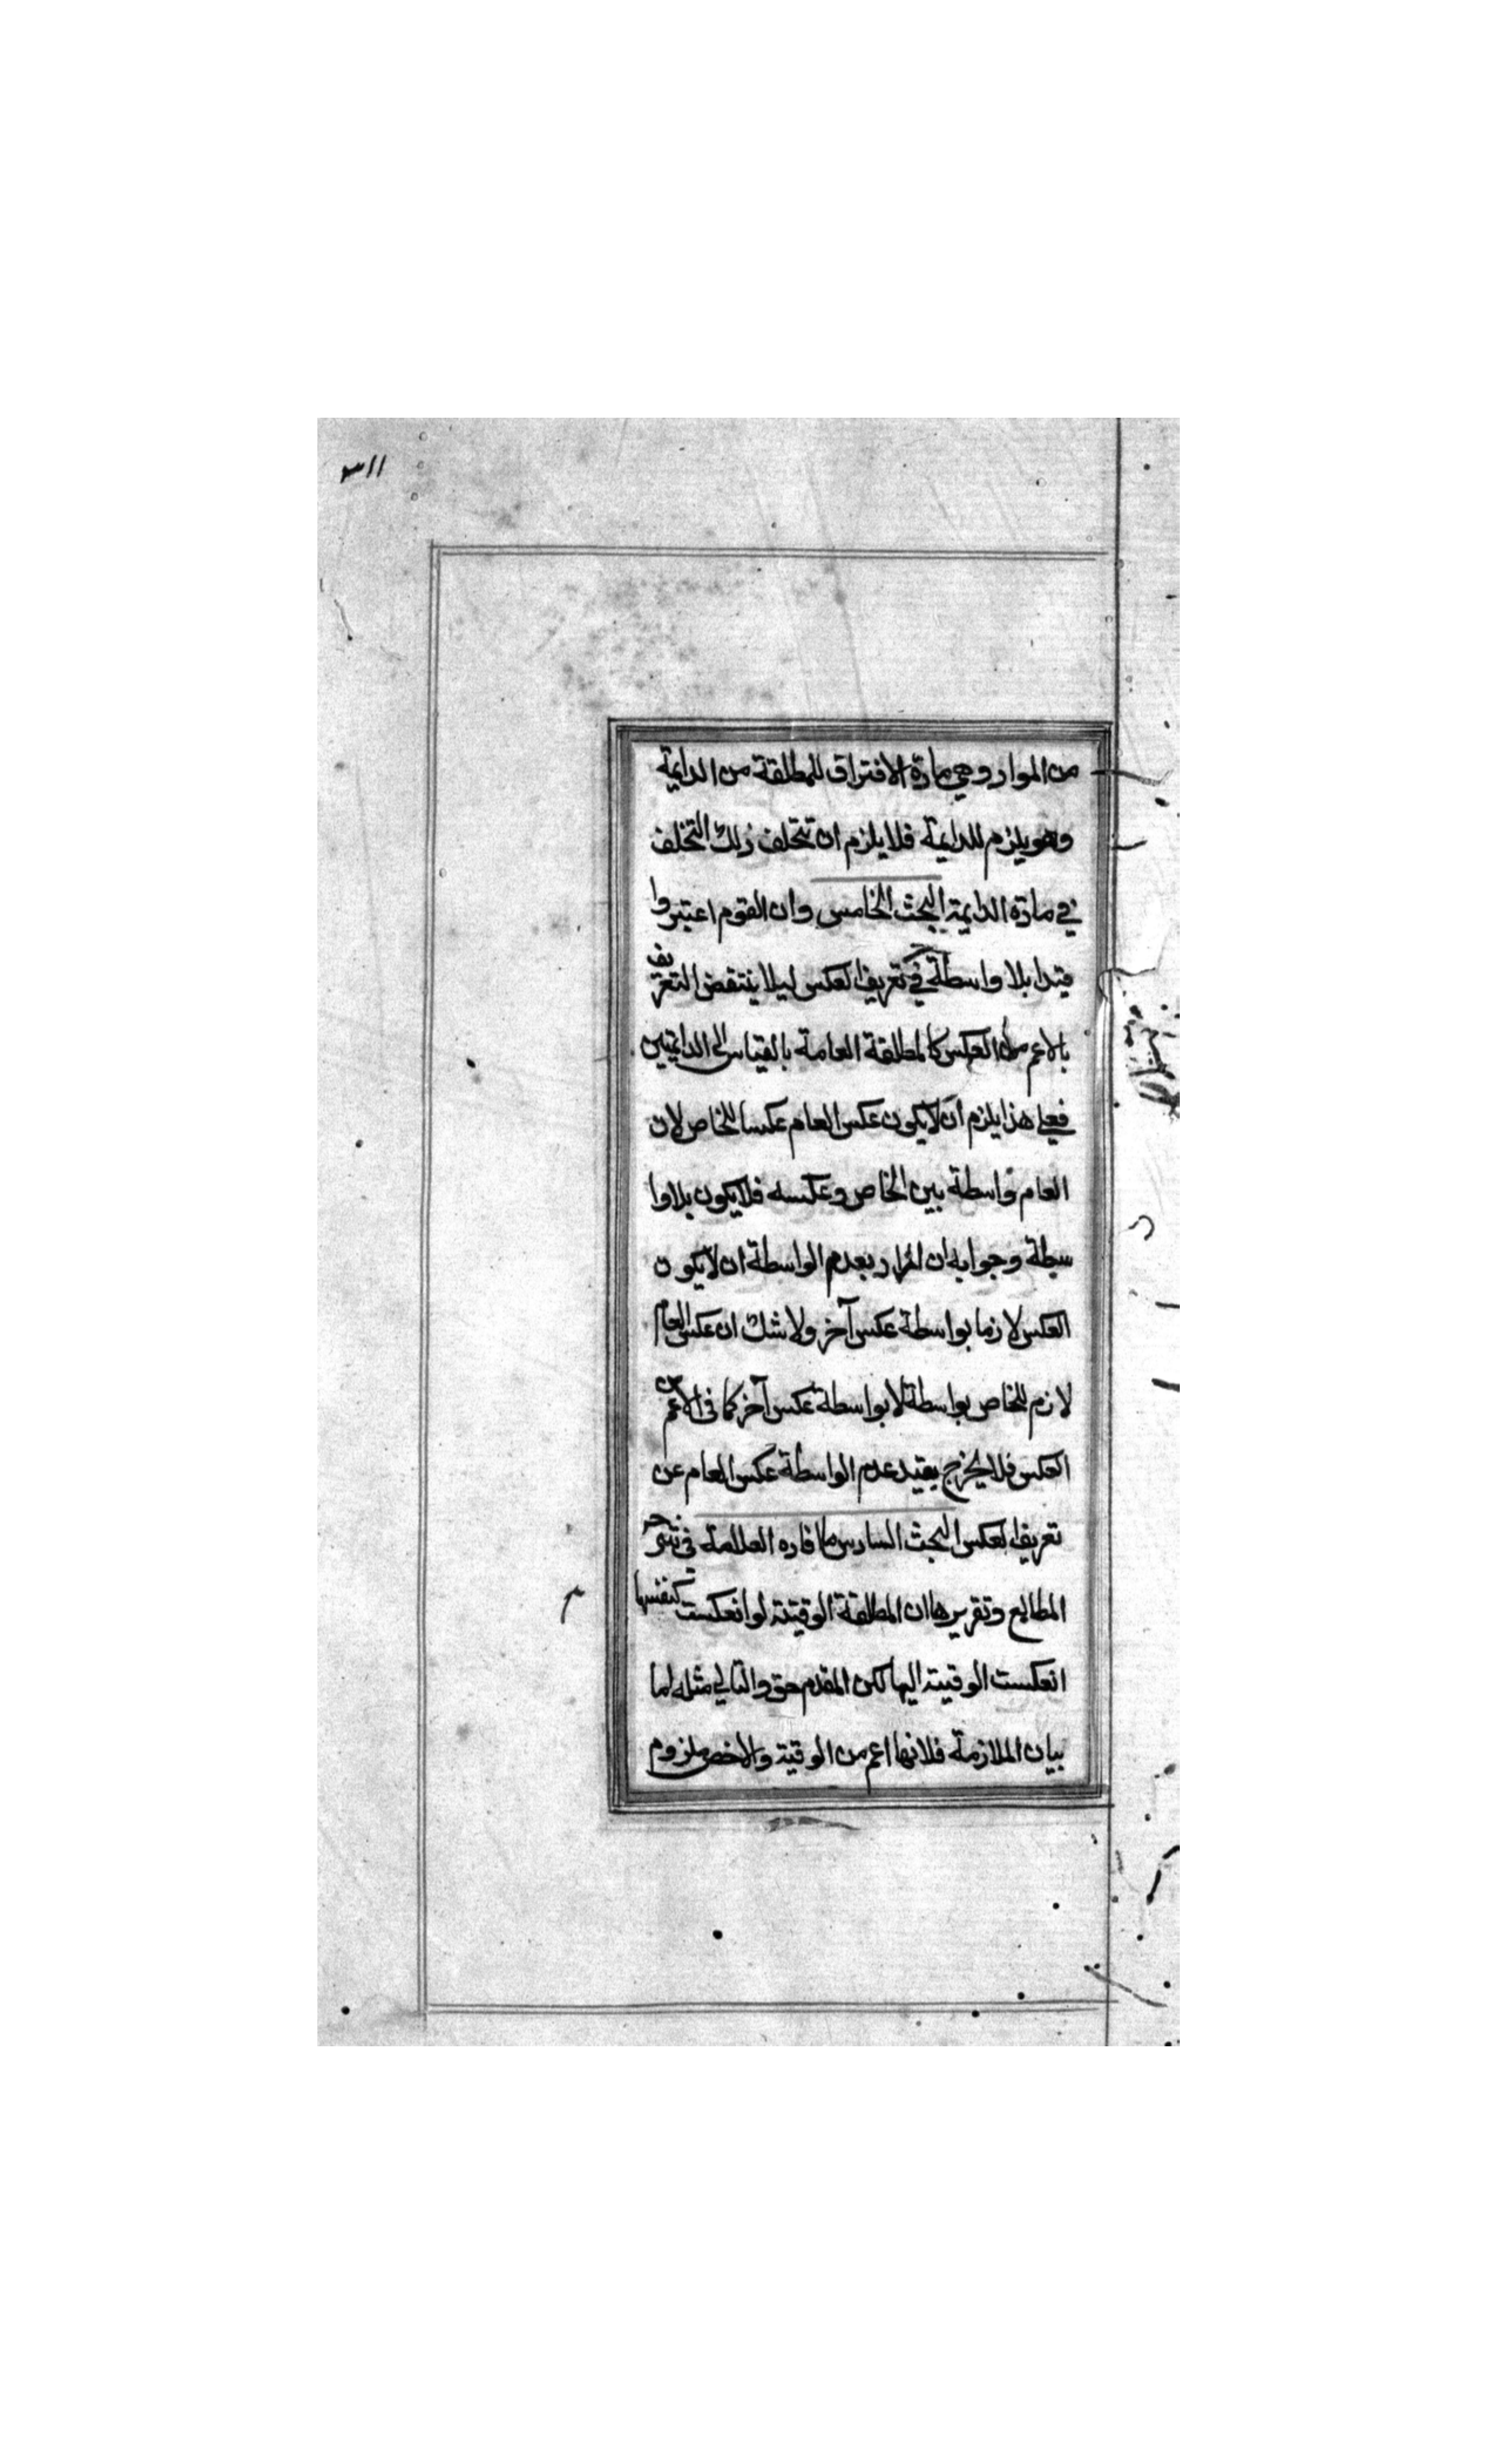 ٣١١
من المواد وهي مادة الافتراق للمطلقة من الدايمة
وهو يلزم للدايمة فلا يلزم ان تتخلف ذلك التخلف
في مادة الدايمة البحث الخامس وان القوم اعتبروا
قيدا بلا واسطة في تعريف العكس ليلا ينتقض التعريف
بالاعم من العكس كالمطلقة العامة بالقياس الى الدايمتين
فعلى هذا يلزم ان لا يكون عكس العام عكسا للخاص لان
العام واسطة بين الخاص وعكسه فلا يكون بلا وا
سطة وجوابه ان المراد بعدم الواسطة ان لا يكون
العكس لازما بواسطة عكس آخر ولا شك ان عكس العام
لازم للخاص بواسطة لا بواسطة عكس آخر كما فى الاعم من
العكس فلا يخرج بقيد عدم الواسطة عكس العام عن
تعريف العكس البحث السادس ما افاده العلامة فى شرح
المطالع وتقريرها ان المطلقة الوقتية لو انعكست كنفسها
انعكست الوقتية اليها لكن المقدم حق والتالي مثله اما
بيان الملازمة فلانها اعم من الوقتية والاخص ملزوم